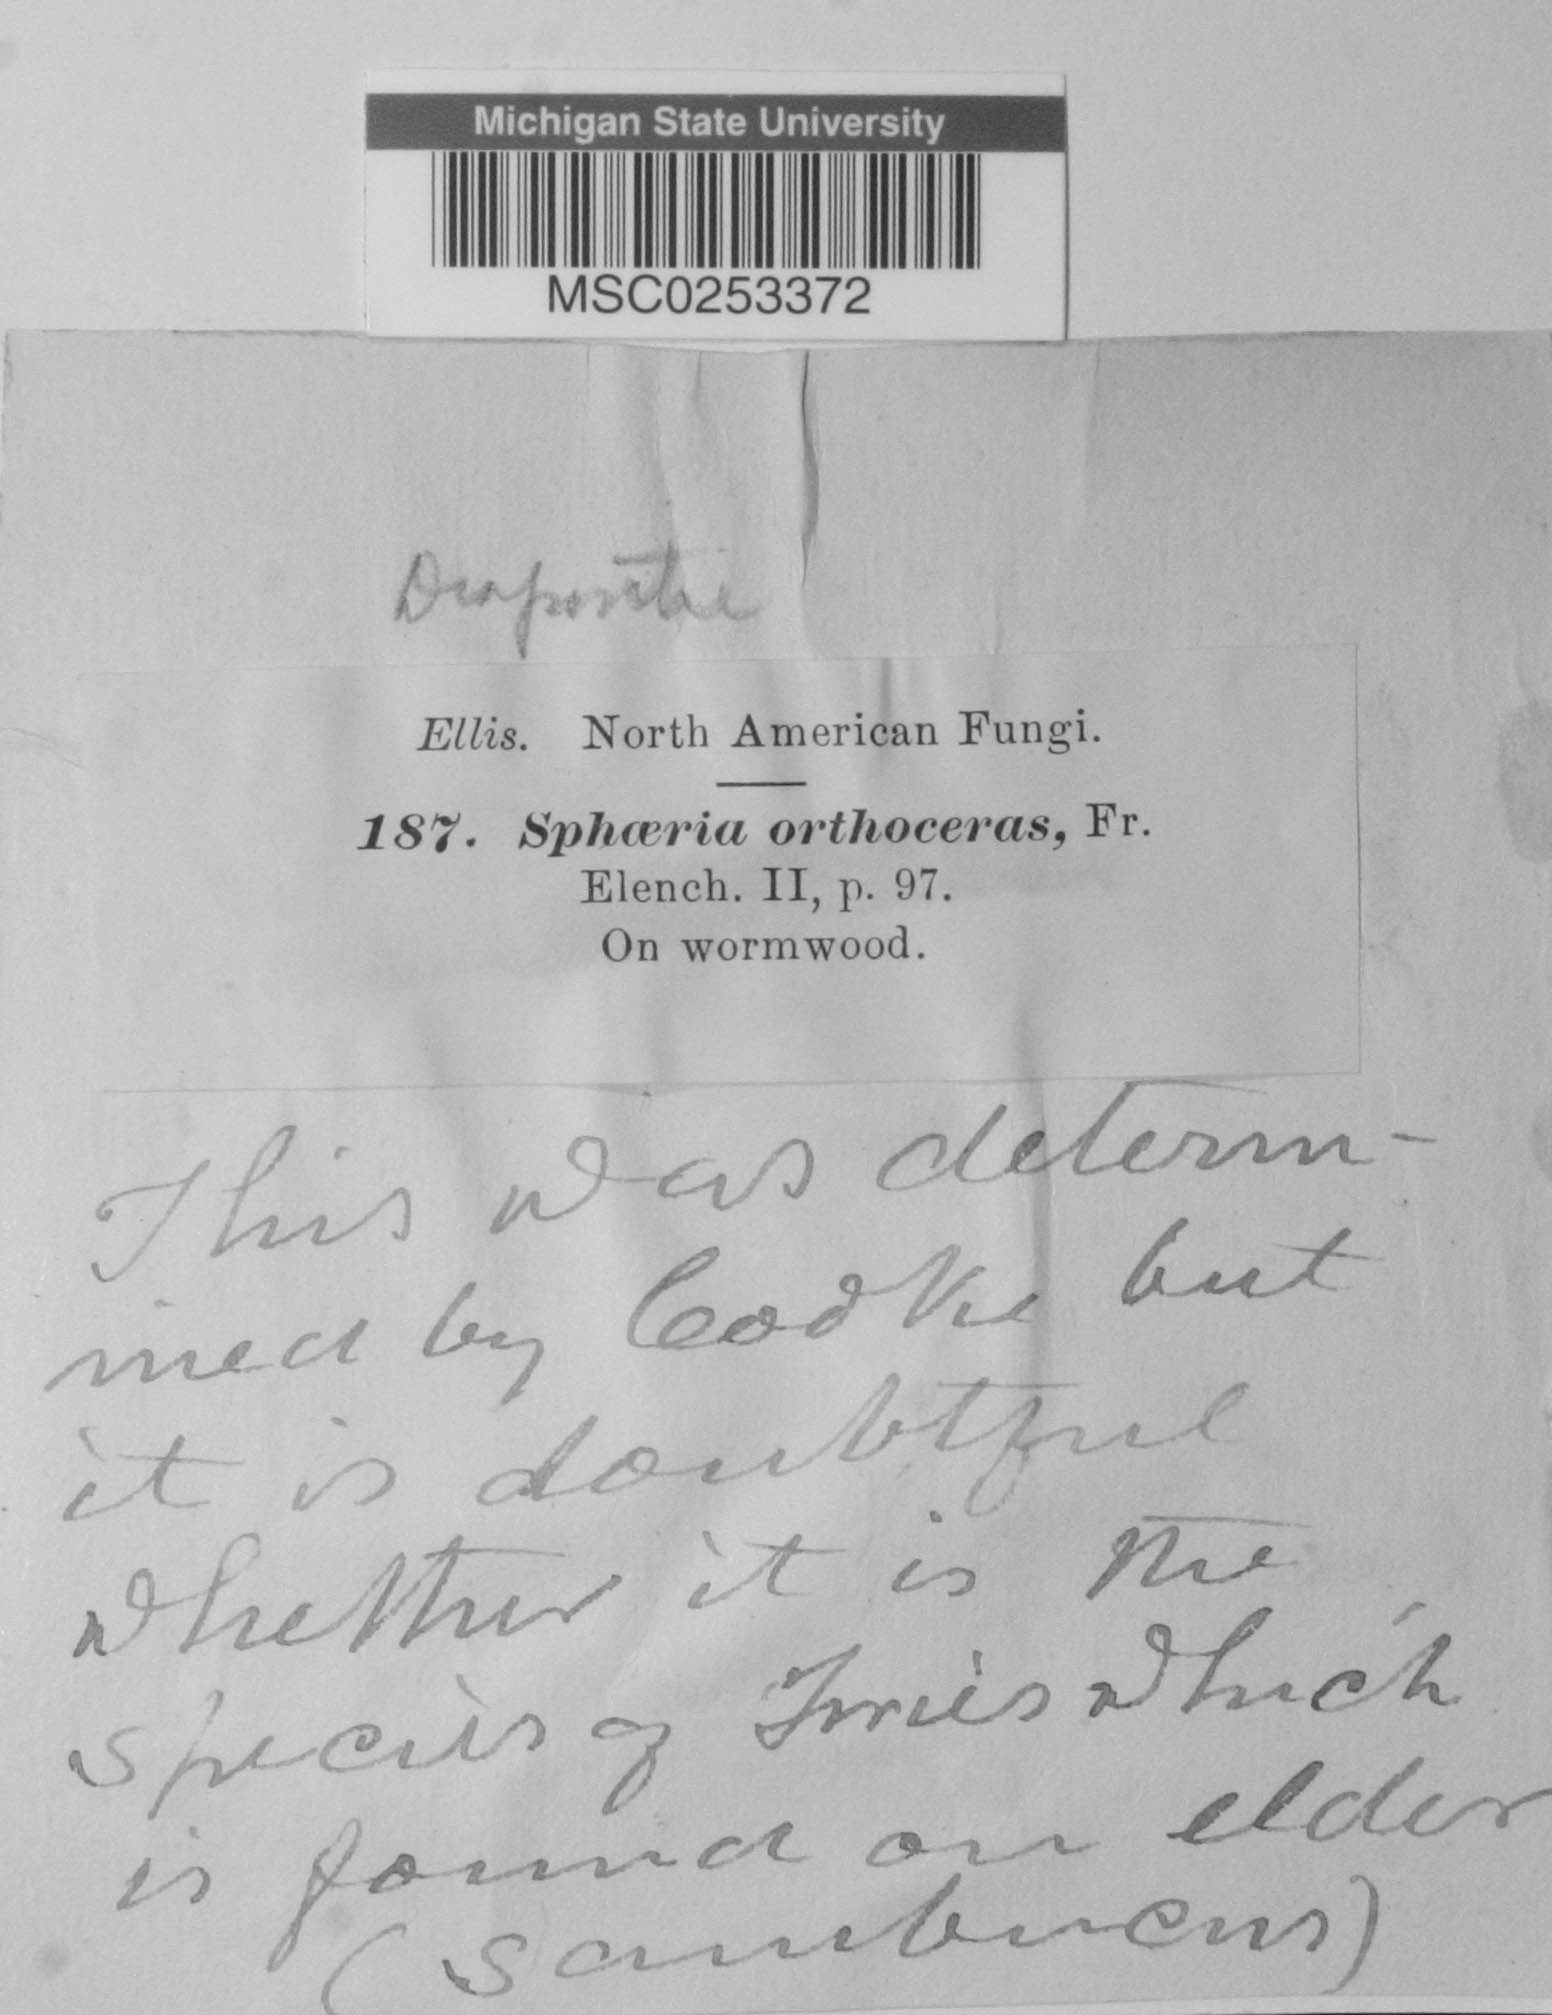 Michigan State University
MSC0253372
Diaporthe
Ellis. North American Fungi.
187. Sphæria orthoceras, Fr.
Elench. II, p. 97.
On wormwood.
This was determ-
ined by Cooke but
it is doubtful
whether it is the
species of Fries which
is found on elder
(Sambucus)